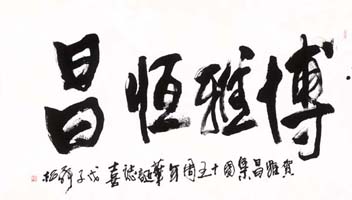 博雅恒昌
賀雅昌集團十五周年華誕誌喜 戊子